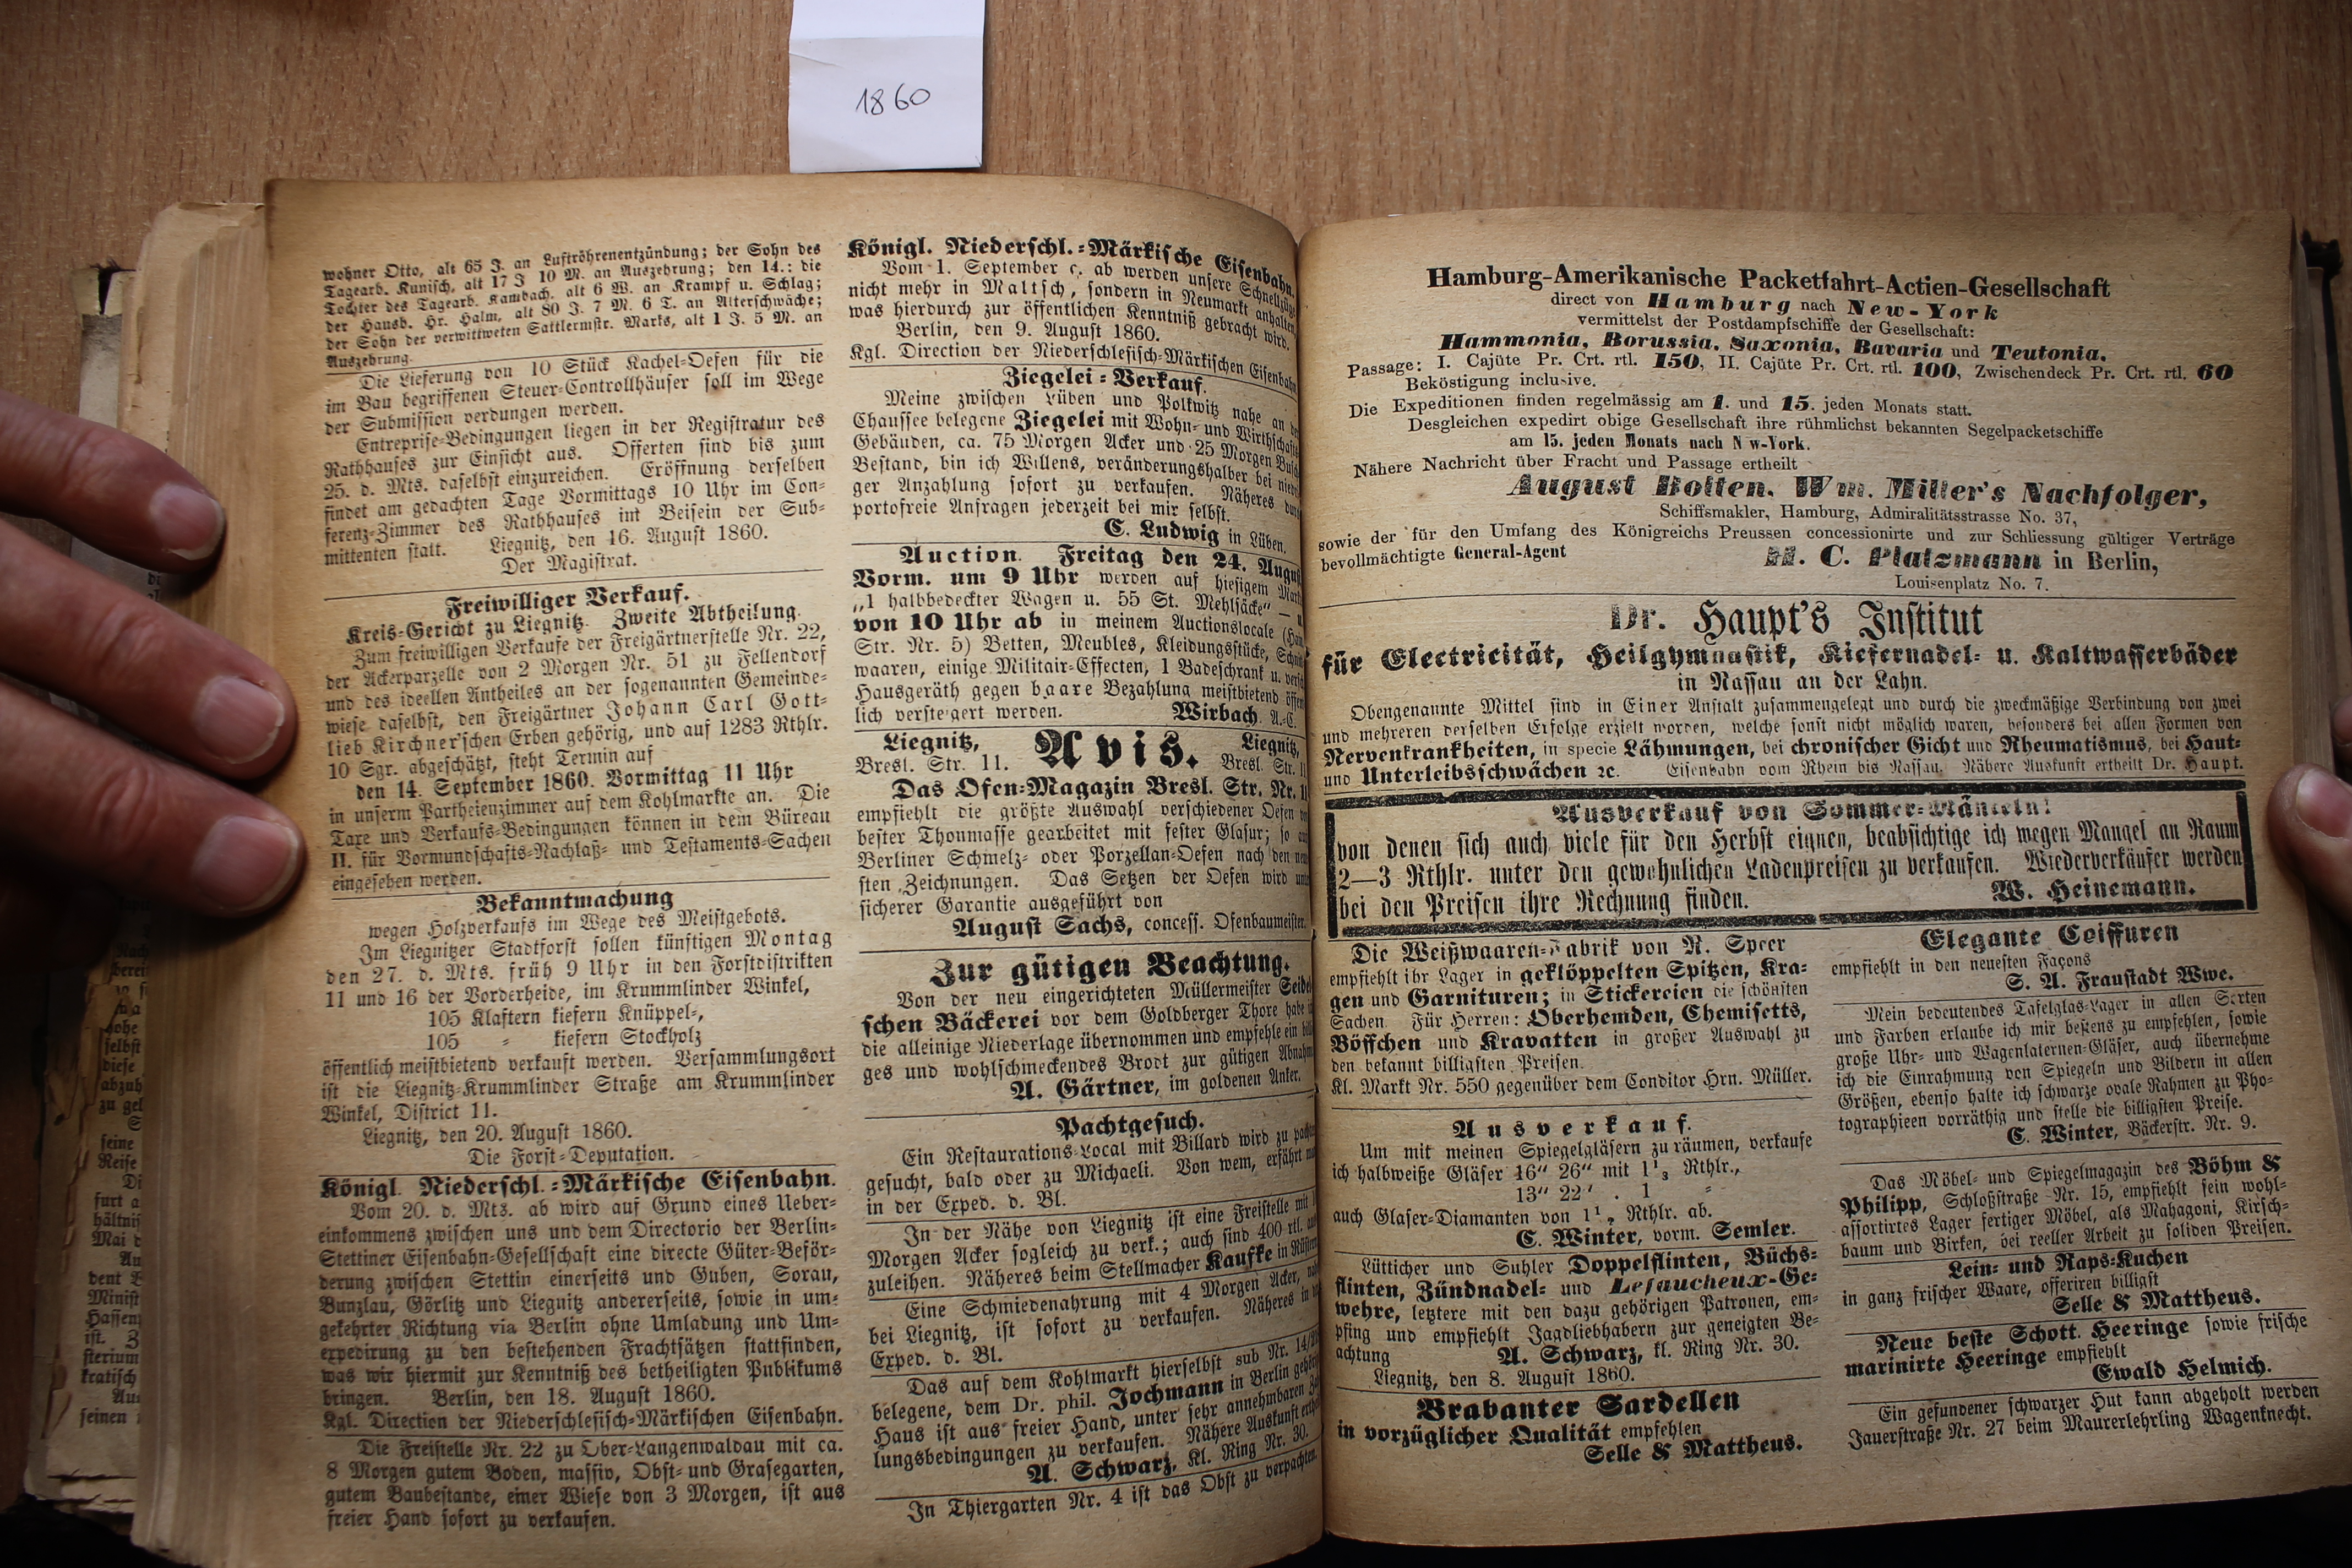 1860
wohner Otto, alt 65 J. an Luftröhrenentzündung; der Sohn des
Tagearb. Kunisch, alt 17 J 10 M. an Auszehrung; den 14.: die
Tochter des Tagearb. Kambach, alt 6 W. an Krampf u. Schlag;
der Hausb. Hr. Halm, alt 80 J. 7 M. 6 T. an Alterschwäche;
der Sohn der verwittweten Sattlermstr. Marks, alt 1 J. 5 M. an
Auszehrung.
Die Lieferung von 10 Stück Kachel-Oefen für die
im Bau begriffenen Steuer-Controllhäuser soll im Wege
der Submission verdungen werden.
Entreprise-Bedingungen liegen in der Registratur des
Rathhauses zur Einsicht aus. Offerten sind bis zum
25. d. Mts. daselbst einzureichen. Eröffnung derselben
findet am gedachten Tage Vormittags 10 Uhr im Con-
ferenz-Zimmer des Rathhauses im Beisein der Sub-
mittenten statt. Liegnitz, den 16. August 1860.
Der Magistrat.
Freiwilliger Verkauf.
Kreis-Gericht zu Liegnitz. Zweite Abtheilung.
Zum freiwilligen Verkaufe der Freigärtnerstelle Nr. 22,
der Ackerparzelle von 2 Morgen Nr. 51 zu Fellendorf
und des ideellen Antheiles an der sogenannten Gemeinde-
wiese daselbst, den Freigärtner Johann Carl Gott-
lieb Kirchner'schen Erben gehörig, und auf 1283 Rthlr.
10 Sgr. abgeschätzt, steht Termin auf
den 14. September 1860. Vormittag 11 Uhr
in unserm Partheienzimmer auf dem Kohlmarkte an. Die
Taxe und Verkaufs-Bedingungen können in dem Büreau
II. für Vormundschafts-Nachlaß- und Testaments-Sachen
eingesehen werden.
Bekanntmachung
wegen Holzverkaufs im Wege des Meistgebots.
Im Liegnitzer Stadtforst sollen künftigen Montag
den 27. d. Mts. früh 9 Uhr in den Forstdistrikten
11 und 16 der Vorderheide, im Krummlinder Winkel,
105 Klaftern kiefern Knüppel-,
105 " kiefern Stockholz
öffentlich meistbietend verkauft werden. Versammlungsort
ist die Liegnitz-Krummlinder Straße am Krummlinder
Winkel, District 11.
Liegnitz, den 20. August 1860.
Die Forst-Deputation.
Königl. Niederschl.-Märkische Eisenbahn.
Vom 20. d. Mts. ab wird auf Grund eines Ueber-
einkommens zwischen uns und dem Directorio der Berlin-
Stettiner Eisenbahn-Gesellschaft eine directe Güter-Beför-
derung zwischen Stettin einerseits und Guben, Sorau,
Bunzlau, Görlitz und Liegnitz andererseits, sowie in um-
gekehrter Richtung via Berlin ohne Umladung und Um-
expedirung zu den bestehenden Frachtsätzen stattfinden,
was wir hiermit zur Kenntniß des betheiligten Publikums
bringen. Berlin, den 18. August 1860.
Kgl. Direction der Niederschlesisch-Märkischen Eisenbahn.
Die Freistelle Nr. 22 zu Ober-Langenwaldau mit ca.
8 Morgen gutem Boden, massiv, Obst- und Grasegarten,
gutem Baubestande, einer Wiese von 3 Morgen, ist aus
freier Hand sofort zu verkaufen.
Königl. Niederschl.-Märkische Eisenbahn.
Vom 1. September c. ab werden unsere Schnellzüge
nicht mehr in Maltsch, sondern in Neumarkt anhalten,
was hierdurch zur öffentlichen Kenntniß gebracht wird.
Berlin, den 9. August 1860.
Kgl. Direction der Niederschlesisch-Märkischen Eisenbahn
Ziegelei-Verkauf.
Meine zwischen Lüben und Polkwitz nahe an der
Chaussee belegene Ziegelei mit Wohn- und Wirthschafts
Gebäuden, ca. 75 Morgen Acker und 25 Morgen Busch
Bestand, bin ich Willens, veränderungshalber bei niedri
ger Anzahlung sofort zu verkaufen. Näheres durch
portofreie Anfragen jederzeit bei mir selbst.
C. Ludwig in Lüben.
Auction. Freitag den 24. August
Vorm. um 9 Uhr werden auf hiesigem Markt
„1 halbbedeckter Wagen u. 55 St. Mehlsäcke" — u.
von 10 Uhr ab in meinem Auctionslocale
Str. Nr. 5) Betten, Meubles, Kleidungsstücke,
waaren, einige Militair-Effecten, 1 Badeschrank u. versch
Hausgeräth gegen baare Bezahlung meistbietend öffent
lich versteigert werden. Wirbach, A.-C.
Liegnitz, Avis. Liegnitz,
Bresl. Str. 11. Bresl. Str. 11
Das Ofen-Magazin Bresl. Str. Nr. 11
empfiehlt die größte Auswahl verschiedener Oefen von
bester Thonmasse gearbeitet mit fester Glasur; so auch
Berliner Schmelz- oder Porzellan-Oefen nach den neu
sten Zeichnungen. Das Setzen der Oefen wird unter
sicherer Garantie ausgeführt von
August Sachs, concess. Ofenbaumeister.
Zur gütigen Beachtung.
Von der neu eingerichteten Müllermeister Seidel
schen Bäckerei vor dem Goldberger Thore habe
die alleinige Niederlage übernommen und empfehle ein
ges und wohlschmeckendes Brodt zur gütigen Abnahme
A. Gärtner, im goldenen Anker.
Pachtgesuch.
Ein Restaurations-Local mit Billard wird zu pachten
gesucht, bald oder zu Michaeli. Von wem, erfährt man
in der Exped. d. Bl.
In der Nähe von Liegnitz ist eine Freistelle mit
Morgen Acker sogleich zu verk.; auch sind 400 rtl.
zuleihen. Näheres beim Stellmacher Kaufke in
Eine Schmiedenahrung mit 4 Morgen Acker,
bei Liegnitz, ist sofort zu verkaufen. Näheres in
Exped. d. Bl.
Das auf dem Kohlmarkt hierselbst sub Nr.
belegene, dem Dr. phil. Jochmann in Berlin
Haus ist aus freier Hand, unter sehr annehmbaren
lungsbedingungen zu verkaufen. Nähere Auskunft
A. Schwarz, Kl. Ring Nr. 30.
In Thiergarten Nr. 4 ist das Obst zu verpachten.
Hamburg-Amerikanische Packetfahrt-Actien-Gesellschaft
direct von Hamburg nach New-York
vermittelst der Postdampfschiffe der Gesellschaft:
Hammonia, Borussia, Saxonia, Bavaria und Teutonia.
Passage: I. Cajüte Pr. Crt. rtl. 150, II. Cajüte Pr. Crt. rtl. 100, Zwischendeck Pr. Crt. rtl. 60
Beköstigung inclusive.
Die Expeditionen finden regelmässig am 1. und 15. jeden Monats statt.
Desgleichen expedirt obige Gesellschaft ihre rühmlichst bekannten Segelpacketschiffe
am 15. jeden Monats nach N w-York.
Nähere Nachricht über Fracht und Passage ertheilt
August Bolten, Wm. Miller's Nachfolger,
Schiffsmakler, Hamburg, Admiralitätsstrasse No. 37,
sowie der für den Umfang des Königreichs Preussen concessionirte und zur Schliessung gültiger Verträge
bevollmächtigte General-Agent H. C. Platzmann in Berlin,
Louisenplatz No. 7.
Dr. Haupt's Institut
für Electricität, Heilgymnastik, Kiefernadel- u. Kaltwasserbäder
in Nassau an der Lahn.
Obengenannte Mittel sind in Einer Anstalt zusammengelegt und durch die zweckmäßige Verbindung von zwei
und mehreren derselben Erfolge erzielt worden, welche sonst nicht möglich waren, besonders bei allen Formen von
Nervenkrankheiten, in specie Lähmungen, bei chronischer Gicht und Rheumatismus, bei Haut-
und Unterleibsschwächen ꝛc. Eisenbahn vom Rhein bis Nassau. Nähere Auskunft ertheilt Dr. Haupt.
Ausverkauf von Sommer-Mänteln!
von denen sich auch viele für den Herbst eignen, beabsichtige ich wegen Mangel an Raum
2—3 Rthlr. unter den gewöhnlichen Ladenpreisen zu verkaufen. Wiederverkäufer werden
bei den Preisen ihre Rechnung finden. W. Heinemann.
Die Weißwaaren-Fabrik von R. Speer
empfiehlt ihr Lager in geklöppelten Spitzen, Kra-
gen und Garnituren; in Stickereien die schönsten
Sachen. Für Herren: Oberhemden, Chemisetts,
Böffchen und Kravatten in großer Auswahl zu
den bekannt billigsten Preisen.
Kl. Markt Nr. 550 gegenüber dem Conditor Hrn. Müller.
Ausverkauf.
Um mit meinen Spiegelgläsern zu räumen, verkaufe
ich halbweiße Gläser 16" 26" mit 1 Rthlr.,
13" 22" . 1 "
auch Glaser-Diamanten von 1 Rthlr. ab.
C. Winter, vorm. Semler.
Lütticher und Suhler Doppelflinten, Büchs-
flinten, Zündnadel- und Lefaucheux-Ge-
wehre, letztere mit den dazu gehörigen Patronen, em-
pfing und empfiehlt Jagdliebhabern zur geneigten Be-
achtung A. Schwarz, kl. Ring Nr. 30.
Liegnitz, den 8. August 1860.
Brabanter Sardellen
in vorzüglicher Qualität empfehlen
Selle & Mattheus.
Elegante Coiffuren
empfiehlt in den neuesten Façons
S. A. Fraustadt Wwe.
Mein bedeutendes Tafelglas-Lager in allen Sorten
und Farben erlaube ich mir bestens zu empfehlen, sowie
große Uhr- und Wagenlaternen-Gläser, auch übernehme
ich die Einrahmung von Spiegeln und Bildern in allen
Größen, ebenso halte ich schwarze ovale Rahmen zu Pho-
tographieen vorräthig und stelle die billigsten Preise.
C. Winter, Bäckerstr. Nr. 9.
Das Möbel- und Spiegelmagazin des Böhm &
Philipp, Schloßstraße Nr. 15, empfiehlt sein wohl-
assortirtes Lager fertiger Möbel, als Mahagoni, Kirsch-
baum und Birken, bei reeller Arbeit zu soliden Preisen.
Lein- und Raps-Kuchen
in ganz frischer Waare, offeriren billigst
Selle & Mattheus.
Neue beste Schott. Heeringe sowie frische
marinirte Heeringe empfiehlt
Ewald Helmich.
Ein gefundener schwarzer Hut kann abgeholt werden
Jauerstraße Nr. 27 beim Maurerlehrling Wagenknecht.